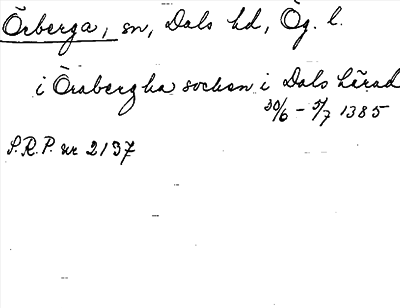 Örberga, sn, Dals hd, Ög. l.
i Örabergha socken i Dals härad
30/6 - 5/7 1385
S.R.P. nr 2137